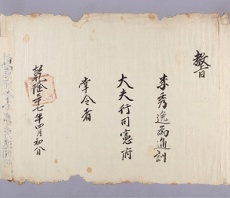 教旨
李秀逸爲通訓
大夫行司憲府
掌令者
乾隆三十七年四月初八日